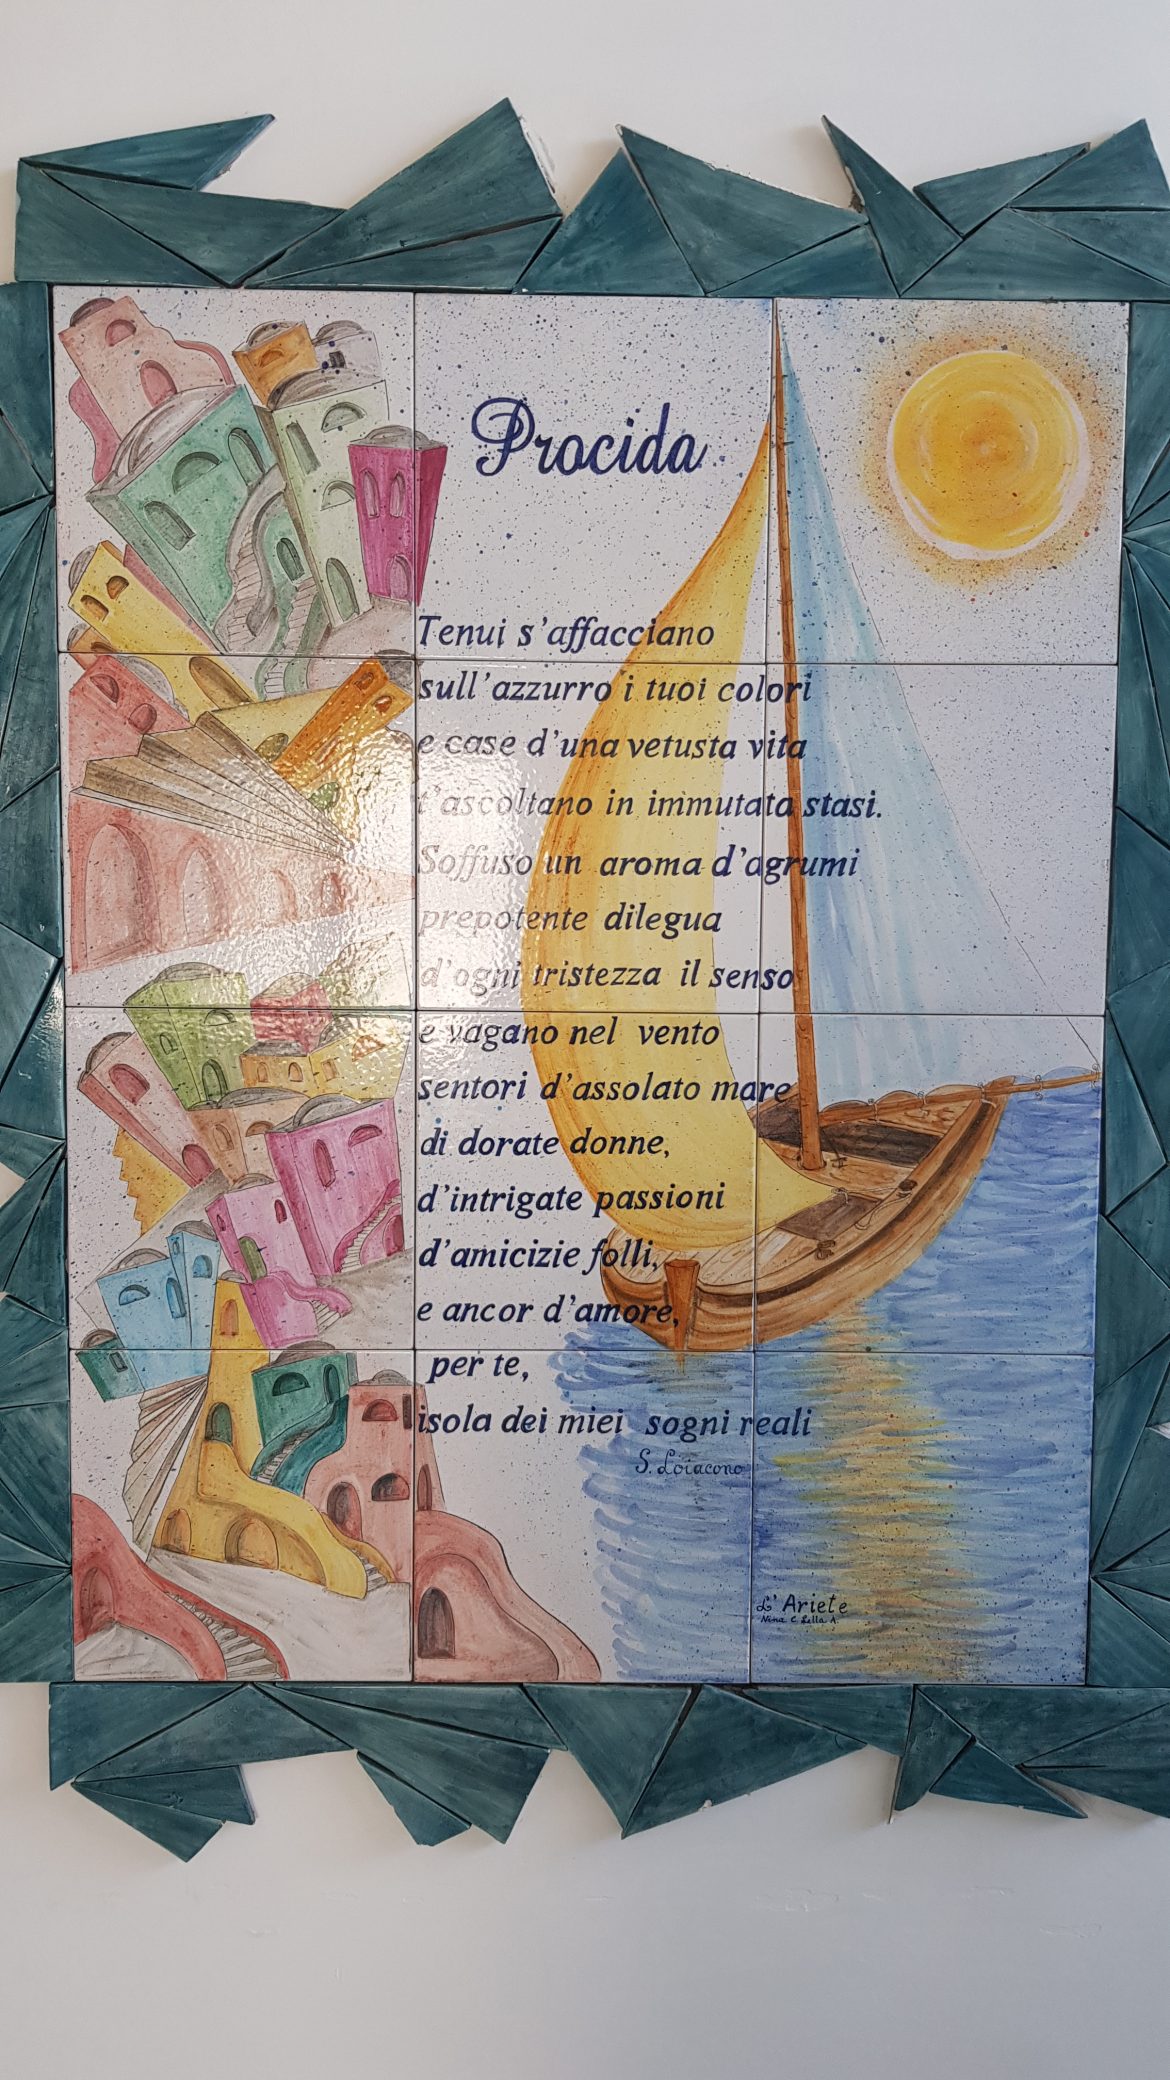 Procida
Tenui s'affacciano
sull'azzurro i tuoi colori
e case d'una vetusta vita
t'ascoltano in immutata stasi.
Soffuso un aroma d'agrumi
prepotente dilegua
d'ogni tristezza il senso
e vagano nel vento
sentori d'assolato mare
di dorate donne,
d'intrigate passioni
d'amicizie folli,
e ancor d'amore,
per te,
isola dei miei sogni reali
S. Loiacono
L'Ariete
Nina C. Lella A.